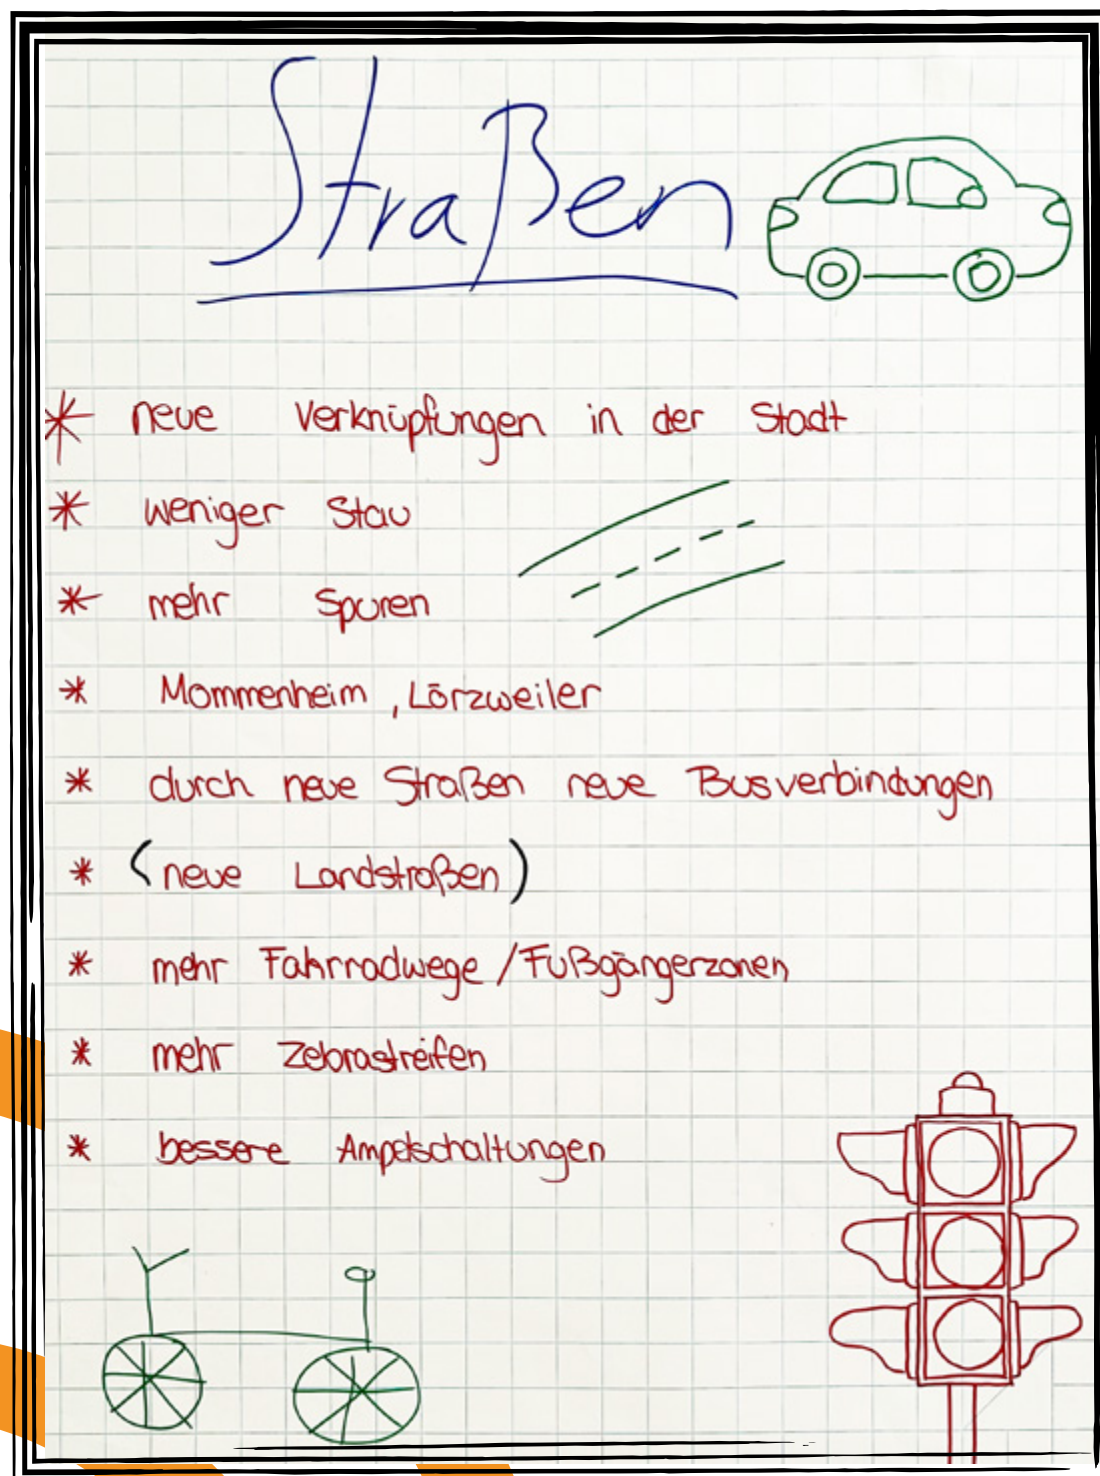 Straßen
* neue Verknüpfungen in der Stadt
* weniger Stau
* mehr Spuren
* Mommenheim, Lörzweiler
* durch neue Straßen neue Busverbindungen
* (neue Landstraßen)
* mehr Fahrradwege / Fußgängerzonen
* mehr Zebrastreifen
* bessere Ampelschaltungen